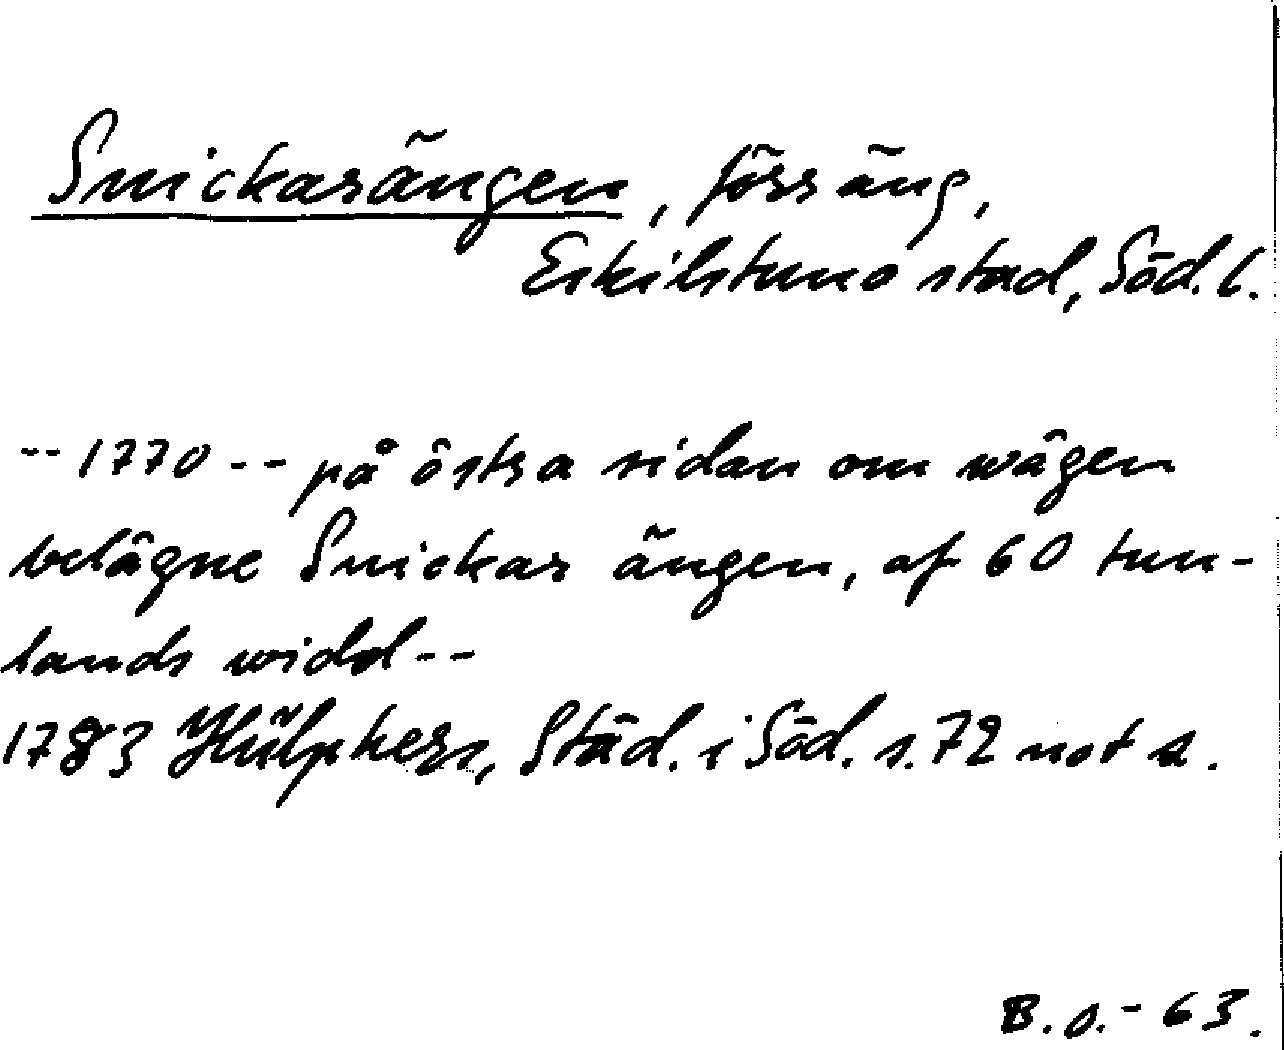 Snickarängen, förr äng,
Eskilstuna stad, Söd. l.
-- 1770 -- på östra sidan om wägen
belägne Snickar ängen, af 60 tun-
lands widd --
1783 Hülphers, Städ. i Söd. s. 72 not a.
B.O.-63.